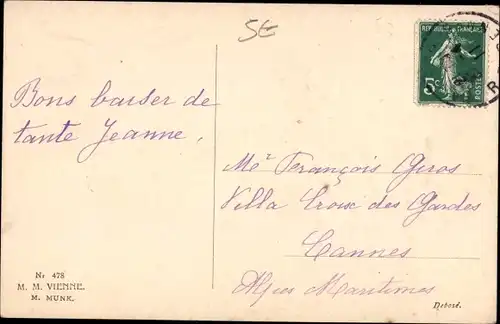 5€
REPUBLIQUE FRANÇAISE
5c
POSTES
Bons baiser de
tante Jeanne.
Mer François Giros
Villa Croix des Gardes
Cannes
Alpes Maritimes
Nr 478
M. M. VIENNE.
M. MUNK.
Déposé.